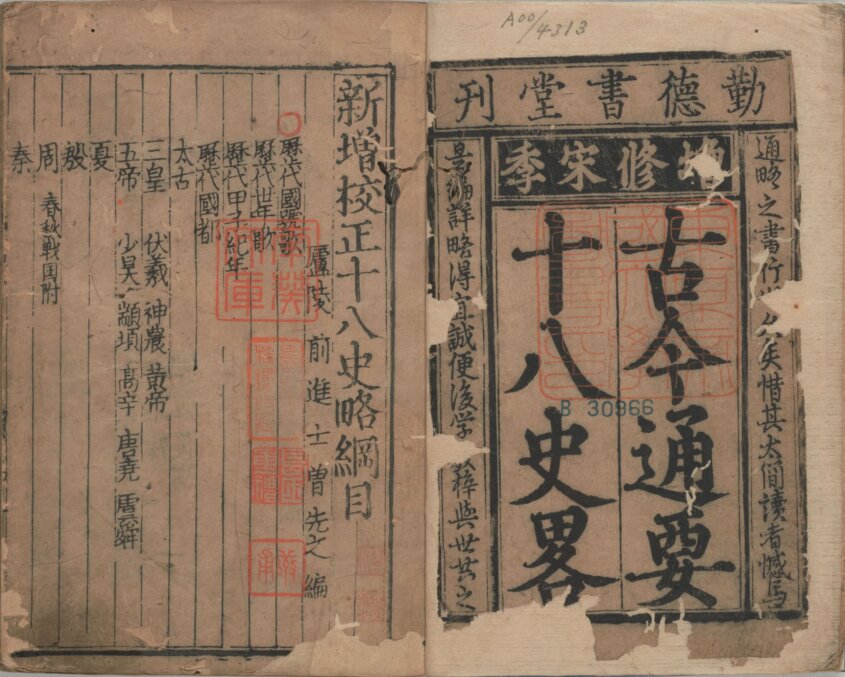 A00/4313
勤德書堂刊
增修宋季
通略之書行世久矣惜其太簡讀者憾焉
古今通要
十八史畧
是編詳略得宜誠便後学 梓與世共之
B 30966
新增校正十八史略綱目
廬陵 前進士曾先之編
歷代國號歌
歷代世年歌
歷代甲子紀年
歷代國都
太古
三皇 伏羲 神農 黃帝
五帝 少昊 顓頊 高辛 唐堯 虞舜
夏
殷
周 春秋戰国附
秦